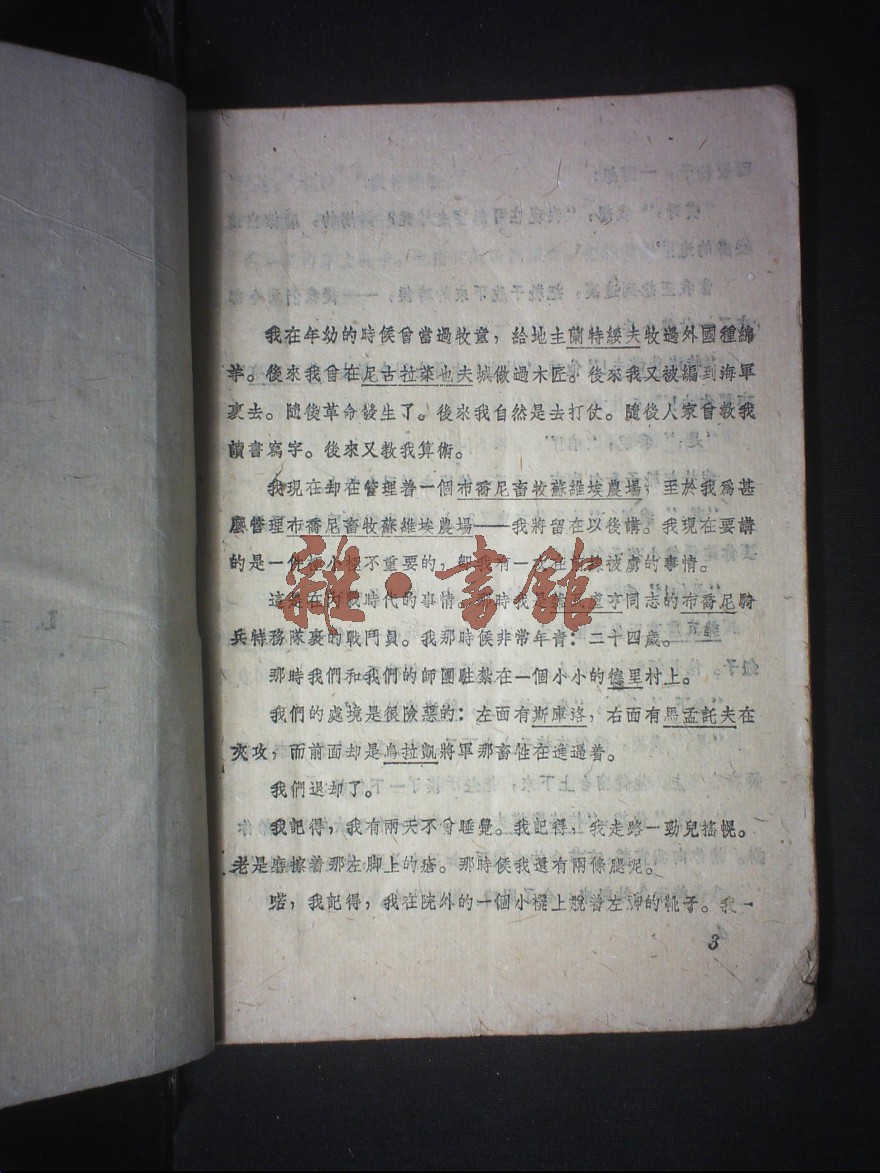 我在年幼的時候曾當過牧童，給地主蘭特綏夫牧過外國種綿
羊。後來我曾在尼古拉萊也夫城做過木匠。後來我又被編到海軍
裏去。隨後革命發生了。後來我自然是去打仗。隨後人家曾教我
讀書寫字。後來又教我算術。
我現在却在管理着一個布喬尼畜牧蘇維埃農場，至於我爲甚
麼管理布喬尼畜牧蘇維埃農場——我將留在以後講。我現在要講
的是一件極小極不重要的，卽我有一次在 被虜的事情。
這是在內戰時代的事情。那時我是 同志的布喬尼騎
兵特務隊裏的戰鬥員。我那時候非常年青：二十四歲。
那時我們和我們的師團駐紮在一個小小的德里村上。
我們的處境是很險惡的：左面有斯庫珞，右面有馬孟託夫在
夾攻，而前面却是烏拉凱將軍那畜牲在進逼着。
我們退却了。
我記得，我有兩天不曾睡覺。我記得，我走路一勁兒搖幌。
老是磨擦着那左脚上的瘡。那時候我還有兩條腿呢。
喏，我記得，我在院外的一個小櫈上脫着左脚的靴子。我一
3
雜·書館